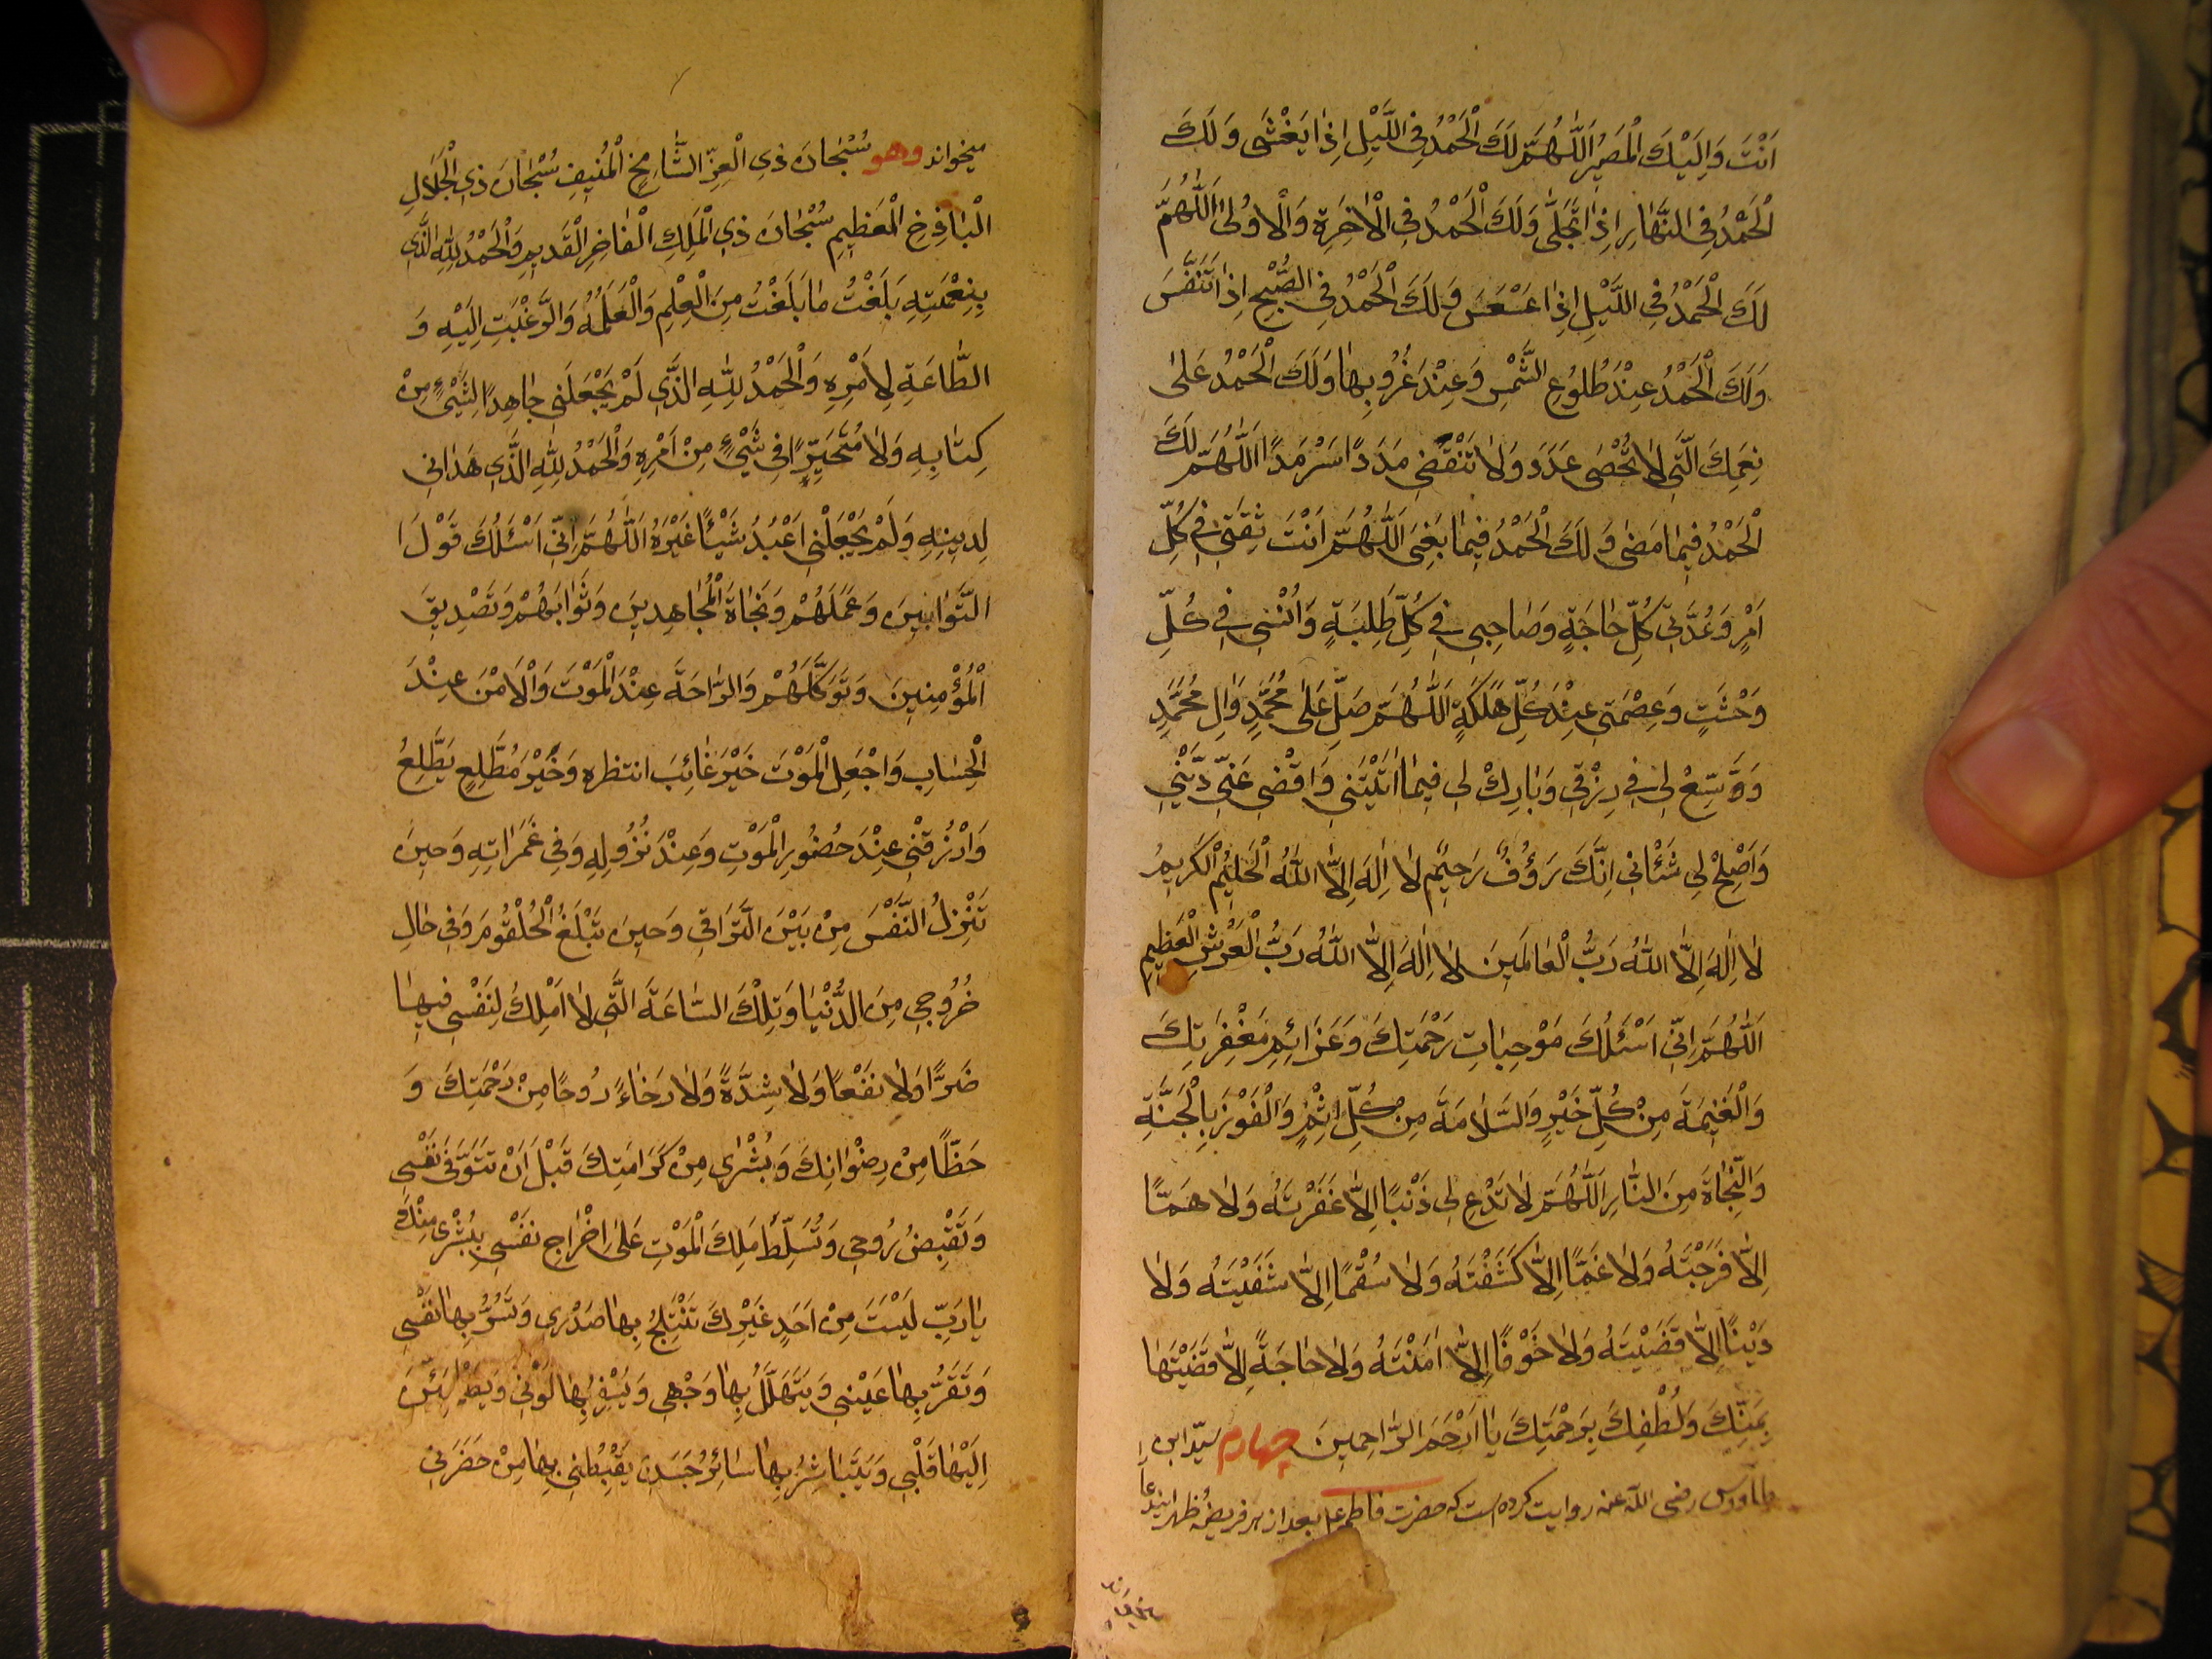 اَنْتَ وَاِلَيْكَ الْمَصيرُ اَللّٰهُمَّ لَكَ الْحَمْدُ فِي اللَّيْلِ اِذٰا يَغْشٰى وَلَكَ
الْحَمْدُ فِي النَّهٰارِ اِذٰا تَجَلّٰى وَلَكَ الْحَمْدُ فِي الْاٰخِرَةِ وَالْاُولٰى اَللّٰهُمَّ
لَكَ الْحَمْدُ فِي اللَّيْلِ اِذٰا عَسْعَسَ وَلَكَ الْحَمْدُ فِي الصُّبْحِ اِذٰا تَنَفَّسَ
وَلَكَ الْحَمْدُ عِنْدَ طُلُوعِ الشَّمْسِ وَعِنْدَ غُرُوبِهٰا وَلَكَ الْحَمْدُ عَلٰى
نِعَمِكَ الَّتي لاٰ تُحْصٰى عَدَدَ وَلاٰ تَنْقَضي مَدَدًا سَرْمَدًا اَللّٰهُمَّ لَكَ
الْحَمْدُ فيمٰا مَضٰى وَلَكَ الْحَمْدُ فيمٰا بَغِىَ اَللّٰهُمَّ اَنْتَ ثِقَتي في كُلِّ
اَمْرٍ وَعُدَّتي كُلِّ حٰاجَةٍ وَصٰاحِبي في كُلِّ طَلِبَةٍ وَاُنْسي في كُلِّ
وَحْشَتٍ وَعِصْمَتي عِنْدَ كُلِّ هَلَكَةٍ اَللّٰهُمَّ صَلِّ عَلٰى مُحَمَّدٍ وَاٰلِ مُحَمَّدٍ
وَوَسِّعْ لي في رِزْقي وَبٰارِكْ لي فيمٰا اٰتَيْتَني وَاقْضِ عَنّي دَيْني
وَاَصْلِحْ لي شَأْني اِنَّكَ رَؤُفٌ رَحيمٌ لاٰ اِلٰهَ اِلَّا اللّٰهُ الْحَليمُ الْكَريمُ
لاٰ اِلٰهَ اِلَّا اللّٰهُ رَبُّ الْعٰالَمينَ لاٰ اِلٰهَ اِلَّا اللّٰهُ رَبُّ الْعَرْشِ الْعَظيمِ
اَللّٰهُمَّ اِنّي اَسْئَلُكَ مَوْجِبٰاتِ رَحْمَتِكَ وَعَزٰائِمِ مَغْفِرَتِكَ
وَالْغَنيمَةَ مِنْ كُلِّ خَيْرٍ وَالسَّلاٰمَةَ مِنْ كُلِّ اِثْمٍ وَالْفَوْزَ بِالْجَنَّةِ
وَالنَّجٰاةَ مِنَ النّٰارِ اَللّٰهُمَّ لاٰ تَدْعِ لي ذَنْبًا اِلَّا غَفَرْتَهُ وَلاٰ هَمًّا
اِلَّا فَرَّجْتَهُ وَلاٰ غَمًّا اِلَّا كَشَفْتَهُ وَلاٰ سُقْمًا اِلَّا شَفَيْتَهُ وَلاٰ
دَيْنًا اِلَّا قَضَيْتَهُ وَلاٰ خَوْفًا اِلَّا اٰمَنْتَهُ وَلاٰ حٰاجَةً اِلَّا قَضَيْتَهٰا
بِمَنِّكَ وَلُطْفِكَ بِرَحْمَتِكَ يٰا اَرْحَمَ الرّٰاحِمينَ چهارم سيّد ابن
طاووس رضى الله عنه روايت كرده است كه حضرت فاطمه ع بعد از هر فريضهٔ ظهر ايندعا را
ميخواند
ميخواند وهو سُبْحٰانَ ذِي الْعِزِّ الشّٰامِخِ الْمُنيفِ سُبْحٰانَ ذِي الْجَلاٰلِ
الْبٰاذِخِ الْعَظيمِ سُبْحٰانَ ذِي الْمَلِكِ الْفٰاخِرِ الْقَديمِ وَالْحَمْدُ لِلّٰهِ الَّذي
بِنِعْمَتِهِ بَلَغْتُ مٰا بَلَغْتُ مِنَ الْعِلْمِ وَالْعَلَمُهُ وَالرَّغْبَتِ اِلَيْهِ وَ
الطّٰاعَةِ لِاَمْرِهِ وَالْحَمْدُ لِلّٰهِ الَّذي لَمْ يَجْعَلَني جٰاهِدًا لِشَيْءٍ مِنْ
كِتٰابِهِ وَلاٰ مُتَحَيِّرًا في شَيْءٍ مِنْ اَمْرِهِ وَالْحَمْدُ لِلّٰهِ الَّذي هَدٰاني
لِدينِهِ وَلَمْ يَجْعَلْني اَعْبُدُ شَيْئًا غَيْرَهُ اَللّٰهُمَّ اِنّي اَسْئَلُكَ قَوْلَ
التَّوّٰابينَ وَعَمَلَهُمْ وَنَجٰاةَ الْمُجٰاهِدينَ وَثَوٰابَهُمْ وَتَصْديقَ
الْمُؤْمِنينَ وَتَوَكَّلَهُمْ وَالرّٰاحَةَ عِنْدَ الْمَوْتَ وَالْاَمْنَ عِنْدَ
الْحِسٰابِ وَاجْعَلِ الْمَوْتَ خَيْرَ غٰائِبَ انتظره وَخَيْرَ مُطَّلِعٍ يَطَّلِعُ
وَارْزُقْني عِنْدَ حُضُورِ الْمَوْتِ وَعِنْدَ نُزُولِهِ وَفي غَمَرٰاتِهِ وَحينَ
تَنْزِلُ النَّفْسَ مِنْ بَيْنَ التَّرٰاقي وَحينَ تَبْلَغُ الْحُلْقُومَ وَفي حٰالِ
خُرُوجي مِنَ الدُّنْيٰا وَتِلْكَ السّٰاعَةَ الَّتي لاٰ اَمْلِكُ لِنَفْسي فيهٰا
ضَرًّا وَلاٰ نَفْعًا وَلاٰ شِدَّةً وَلاٰ رَخٰاءً رُوحًا مِنْ رَحْمَتِكَ وَ
حَظًّا مِنْ رِضْوٰانِكَ وَبُشْرٰى مِنْ كَرٰامَتِكَ قَبْلَ اَنْ تَتَوَفّٰى نَفْسي
وَتَقْبِضُ رُوحي وَتُسَلِّطَ مَلِكَ الْمَوْتِ عَلٰى اِخْرٰاجِ نَفْسي بِبُشْرٰى مِنْكَ
يٰا رَبِّ لَيْسَتَ مِنْ اَحَدٍ غَيْرِكَ تَثْلِجُ بِهٰا صَدْري وَتَسُرُّ بِهٰا نَفْسي
وَتَقَرُّ بِهٰا عَيْني وَيَتَهَلَّلُ بِهٰا وَجْهي وَيُسْفِرُ بِهٰا لَوْني وَيَطْمَئِنَّ
اِلَيْهٰا قَلْبي وَيَتَبٰاشَرُ بِهٰا سٰائِرُ جَسَدي يَغْبِطُني بِهٰا مِنْ حَضَرَني